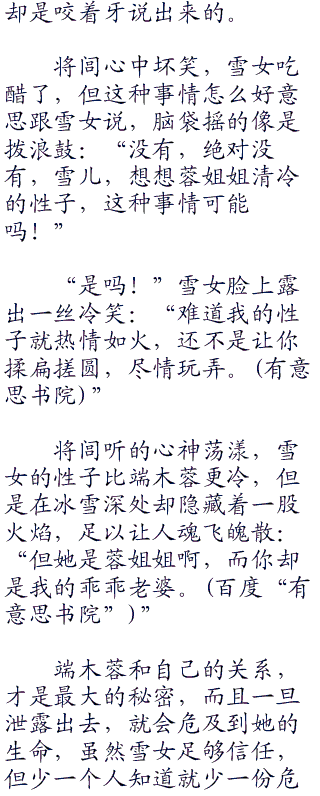 却是咬着牙说出来的。
将闾心中坏笑，雪女吃
醋了，但这种事情怎么好意
思跟雪女说，脑袋摇的像是
拨浪鼓：“没有，绝对没
有，雪儿，想想蓉姐姐清冷
的性子，这种事情可能
吗！”
“是吗！”雪女脸上露
出一丝冷笑：“难道我的性
子就热情如火，还不是让你
揉扁搓圆，尽情玩弄。(有意
思书院)”
将闾听的心神荡漾，雪
女的性子比端木蓉更冷，但
是在冰雪深处却隐藏着一股
火焰，足以让人魂飞魄散：
“但她是蓉姐姐啊，而你却
是我的乖乖老婆。(百度“有
意思书院”)”
端木蓉和自己的关系，
才是最大的秘密，而且一旦
泄露出去，就会危及到她的
生命，虽然雪女足够信任，
但少一个人知道就少一份危